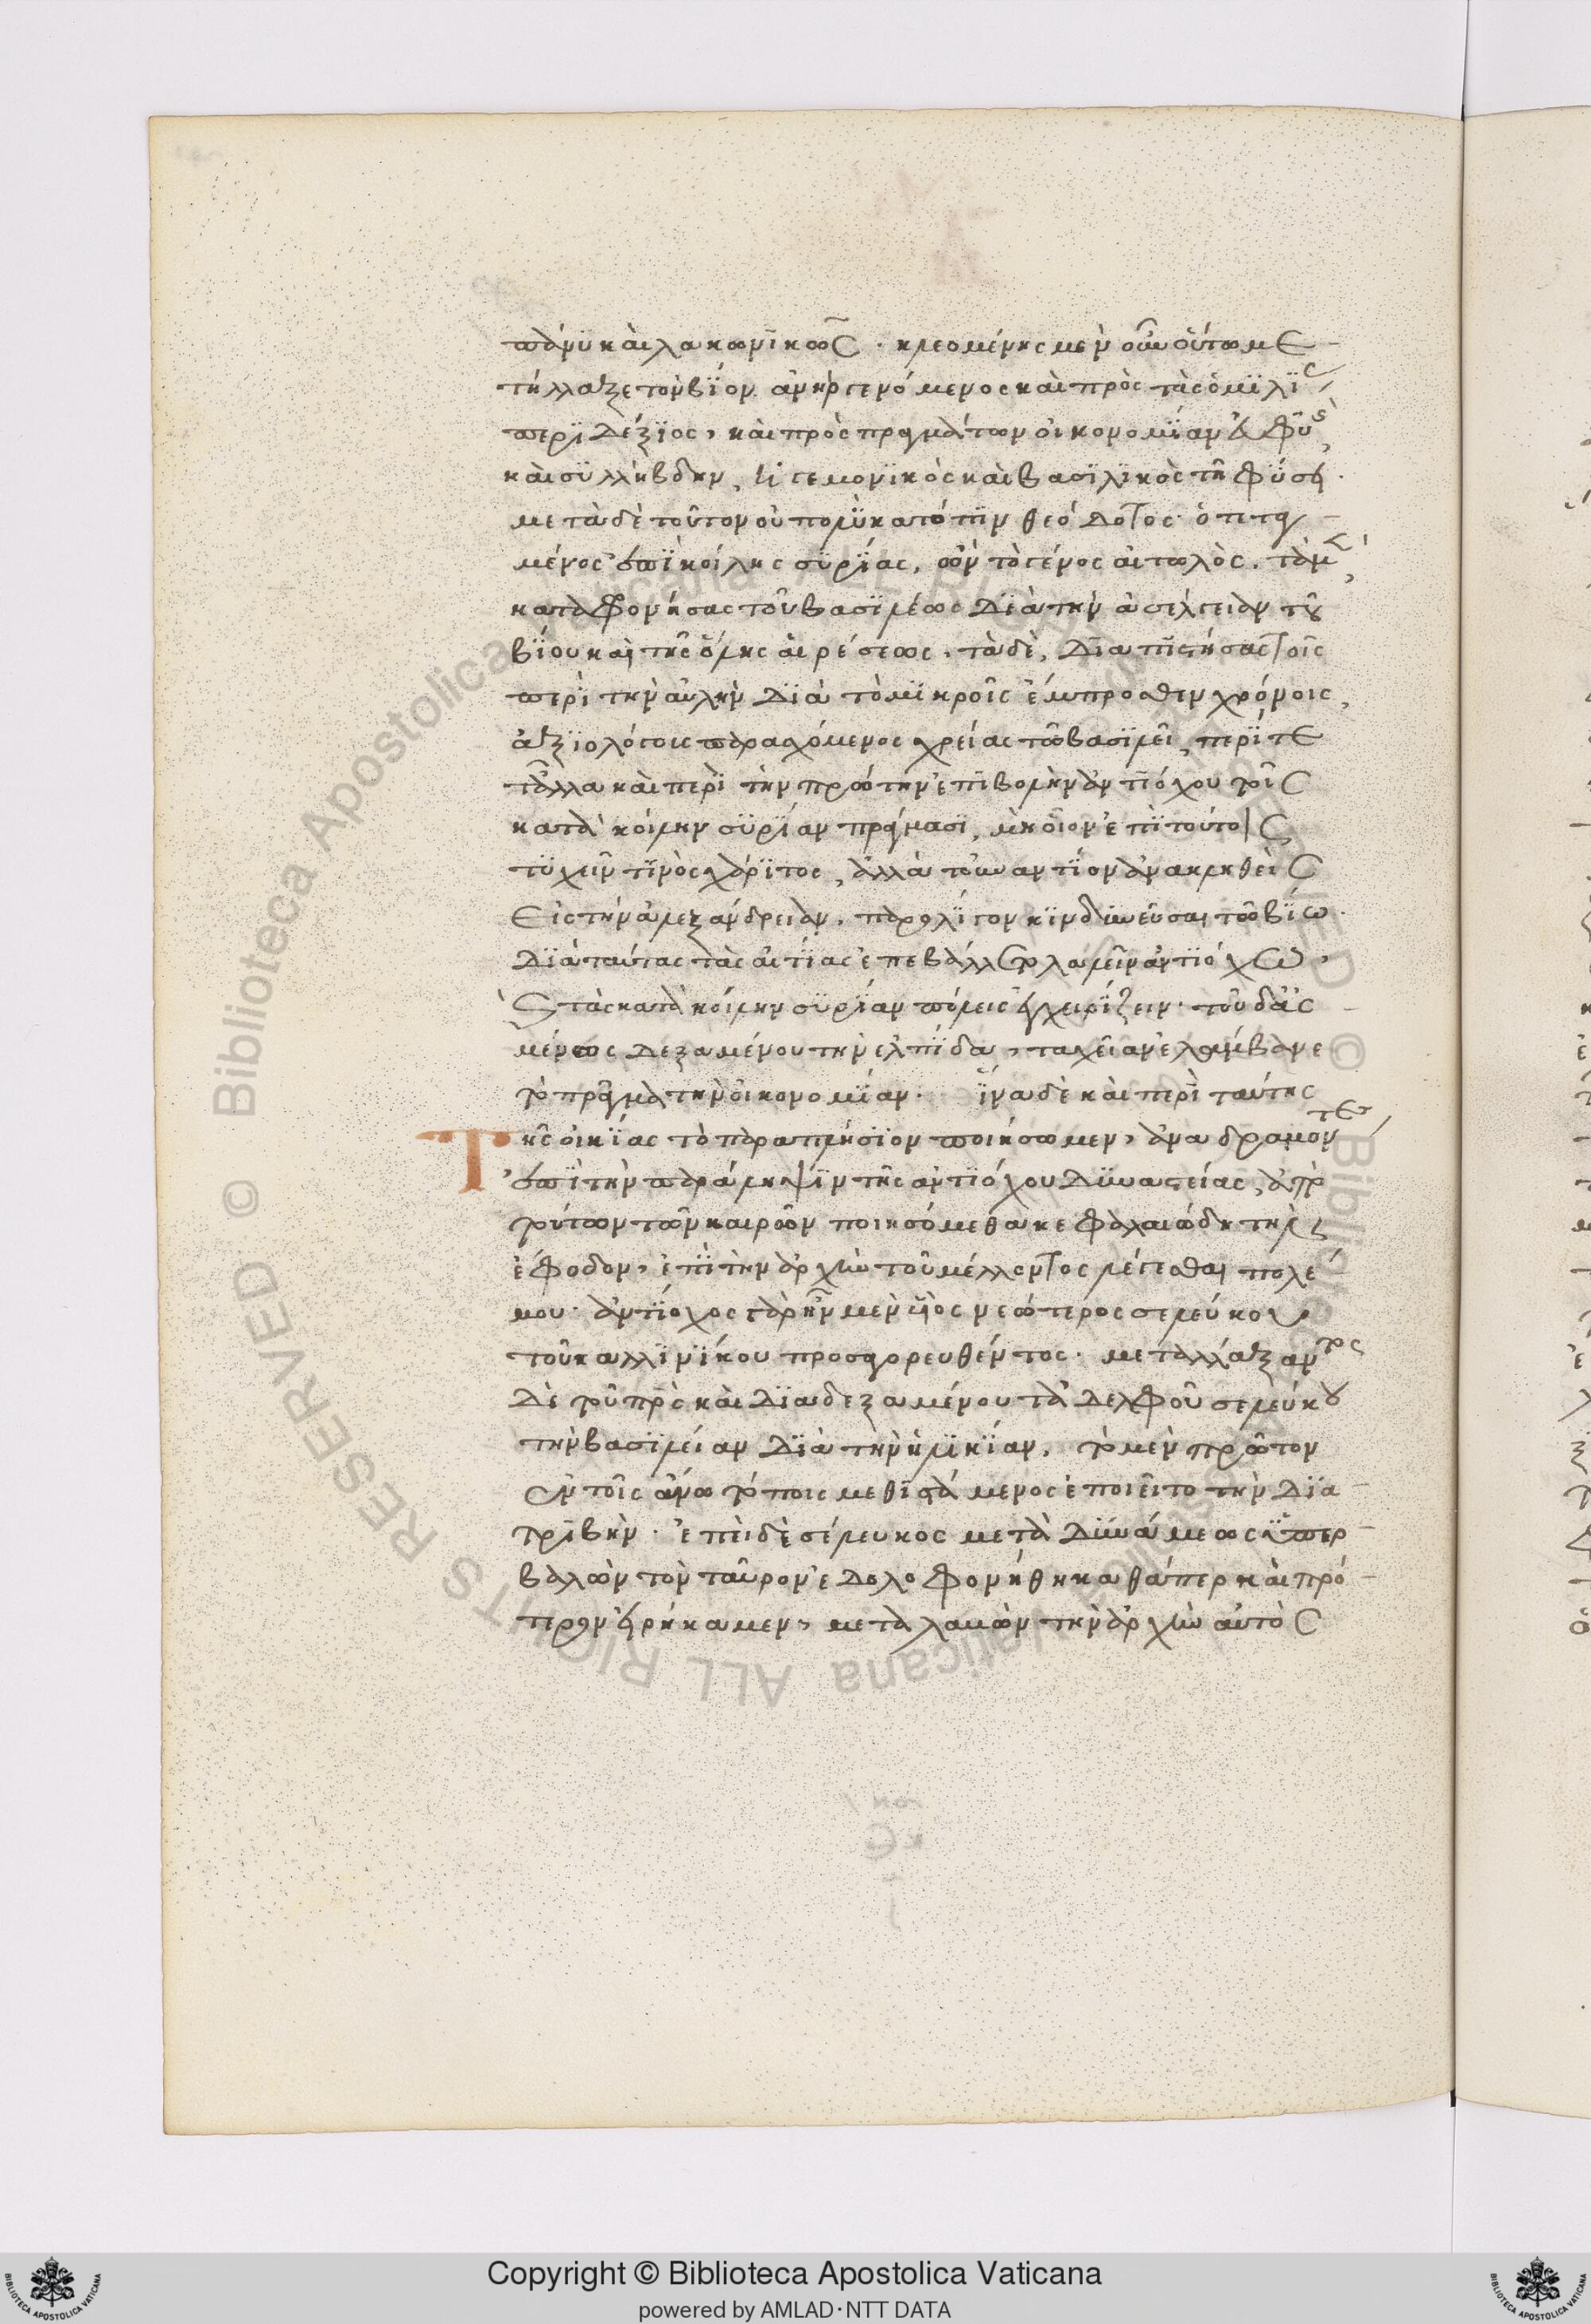 πάνυ καὶ λακωνικῶς. κλεομένης μὲν οὖν οὕτω με
τήλλαξε τὸν βίον ἀνὴρ γενόμενος καὶ πρὸς τὰς ὁμιλίς
περιδέξιος, καὶ πρὸς πραγμάτων οἰκονομίαν εὐφυὴς,
καὶ συλλήβδην, ἡγεμονικὸς καὶ βασιλικὸς τῇ φύσει.
μετὰ δὲ τοῦτον οὐ πολὺ κατόπιν θεόδοτος ὁ τεταγ
μένος ἐπὶ κοίλης συρίας, ὢν τὸ γένος αἰτωλὸς. τὰ μὲν,
καταφρονήσας τοῦ βασιλέως διὰ τὴν ἀσέλγειαν τοῦ
βίου καὶ τῆς ὅλης αἱρέσεως. τὰ δὲ, διαπιστήσας τοῖς
περὶ τὴν αὐλὴν διὰ τὸ μικροῖς ἔμπροσθεν χρόνοις,
ἀξιολόγους παρασχόμενος χρείας τῶ βασιλεῖ, περί τε
τἄλλα καὶ περὶ τὴν πρώτην ἐπιβολὴν ἀντιόχου τοῖς
κατὰ κοίλην συρίαν πράγμασι, μὴ οἷον ἐπὶ τούτοις
τυχεῖν τινὸς χάριτος, ἀλλὰ τοὐναντίον ἀνακληθεὶς
εἰς τὴν ἀλεξάνδρειαν. παρ' ὀλίγον κινδυνεῦσαι τῶ βίω.
διὰ ταύτας τὰς αἰτίας ἐπεβάλλετο λαλεῖν ἀντιόχω,
καὶ τὰς κατὰ κοίλην συρίαν πόλεις ἐγχειρίζειν. τοῦ δ' ἀσ
μένως δεξαμένου τὴν ἐλπίδα, ταχεῖαν ἐλάμβανε
τὸ πρᾶγμα τὴν οἰκονομίαν. ἵνα δὲ καὶ περὶ ταύτης
Τῆς οἰκίας τὸ παραπλήσιον ποιήσωμεν, ἀναδραμόντες
ἐπὶ τὴν παράληψιν τῆς ἀντιόχου δυναστείας, ἀπὸ
τούτων τῶν καιρῶν ποιησόμεθα κεφαλαιώδη τὴν
ἔφοδον, ἐπὶ τὴν ἀρχὴν τοῦ μέλλοντος λέγεσθαι πολέ
μου. ἀντίοχος γὰρ ἦν μὲν υἱὸς νεώτερος σελεύκου
τοῦ καλλινίκου προσαγορευθέντος. μεταλλάξαντος
δὲ τοῦ πρς καὶ διαδεξαμένου τἀδελφοῦ σελεύκου
τὴν βασιλείαν διὰ τὴν ἡλικίαν, τὸ μὲν πρῶτον
ἐν τοῖς ἄνω τόποις μεθιστάμενος ἐποιεῖτο τὴν δια
τριβὴν. ἐπεὶ δὲ σέλευκος μετὰ δυνάμεως ὑπερ
βαλὼν τὸν ταῦρον ἐδολοφονήθη καθάπερ καὶ πρό
τερον εἰρήκαμεν, μεταλαβὼν τὴν ἀρχὴν αὐτὸς
Copyright © Biblioteca Apostolica Vaticana
powered by AMLAD·NTT DATA